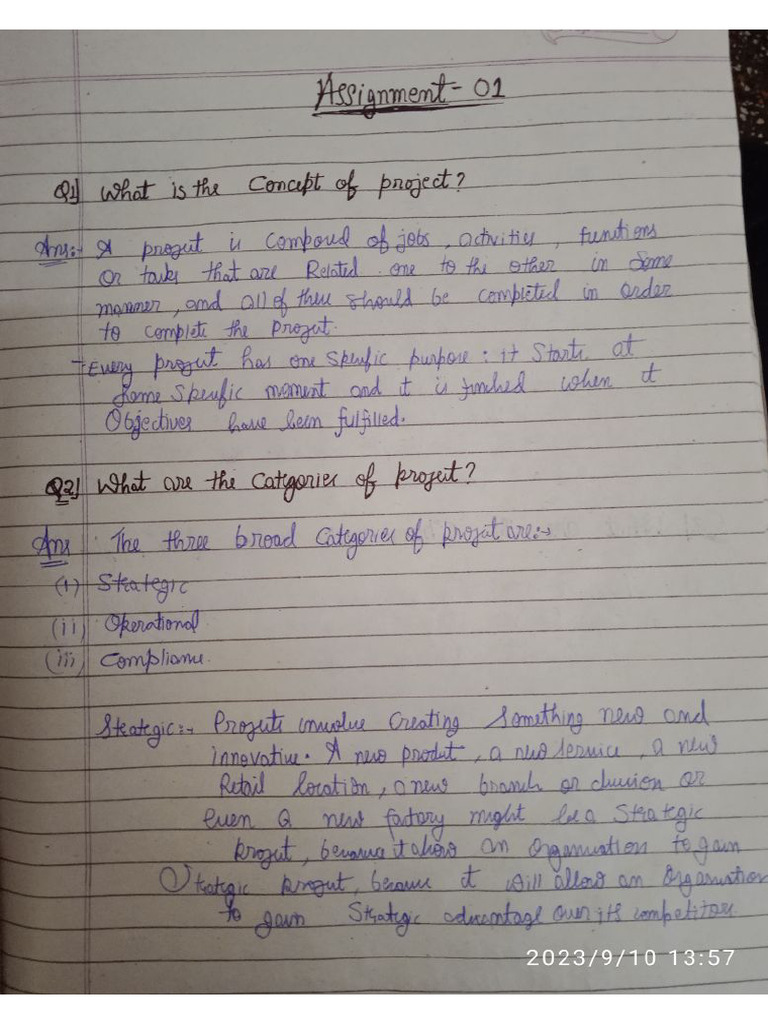 Assignment - 01
Q1] What is the Concept of project?
Ans:- A project is composed of jobs, activities, functions
or tasks that are Related one to the other in Some
manner, and all of these should be completed in order
to complete the Project.
→ Every project has one specific purpose: it Starts at
Some specific moment and it is finished when it
Objectives have been fulfilled.
Q2] What are the Categories of project?
Ans The three broad Categories of project are:→
(i) Strategic
(ii) Operational
(iii) Compliance.
Strategic:→ Projects involve Creating Something new and
innovative. A new product, a new service, a new
Retail location, a new branch or division or
even a new factory might be a Strategic
project, because it allows an Organisation to gain
Strategic project, because it will allow an Organisation
to gain Strategic advantage over its competitors
2023/9/10 13:57